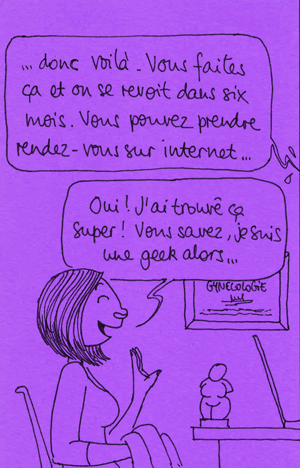 ... donc voilà. Vous faites
ça et on se revoit dans six
mois. Vous pouvez prendre
rendez-vous sur internet...
Oui! J'ai trouvé ça
super! Vous savez, je suis
une geek alors...
GYNECOLOGIE